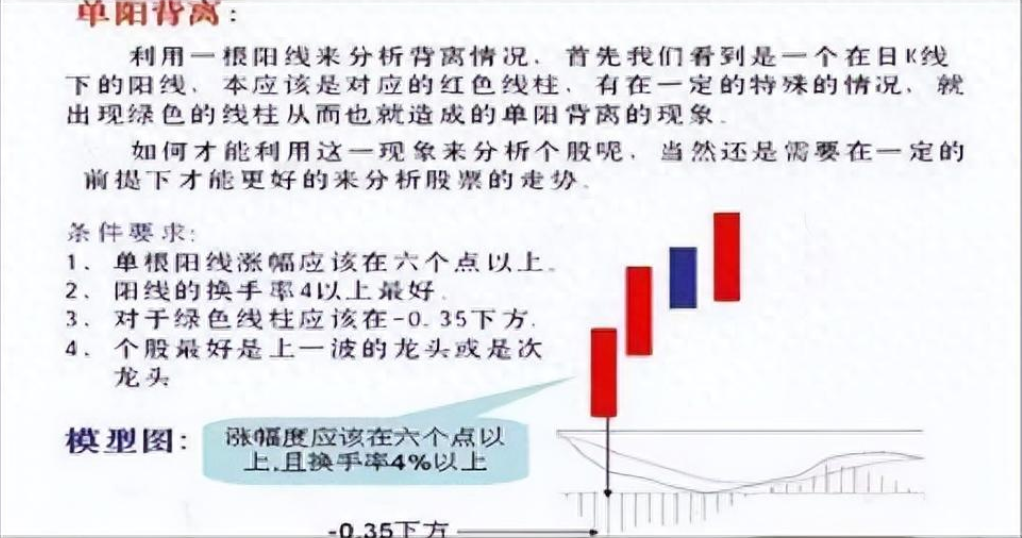 单阳背离：
利用一根阳线来分析背离情况．首先我们看到是一个在日K线
下的阳线．本应该是对应的红色线柱．有在一定的特殊的情况．就
出现绿色的线柱从而也就造成的单阳背离的现象．
如何才能利用这一现象来分析个股呢．当然还是需要在一定的
前提下才能更好的来分析股票的走势．
条件要求：
1、单根阳线涨幅应该在六个点以上．
2、阳线的换手率4以上最好．
3、对于绿色线柱应该在-0.35下方．
4、个股最好是上一波的龙头或是次
龙头
模型图：
涨幅度应该在六个点以
上,且换手率4%以上
-0.35下方